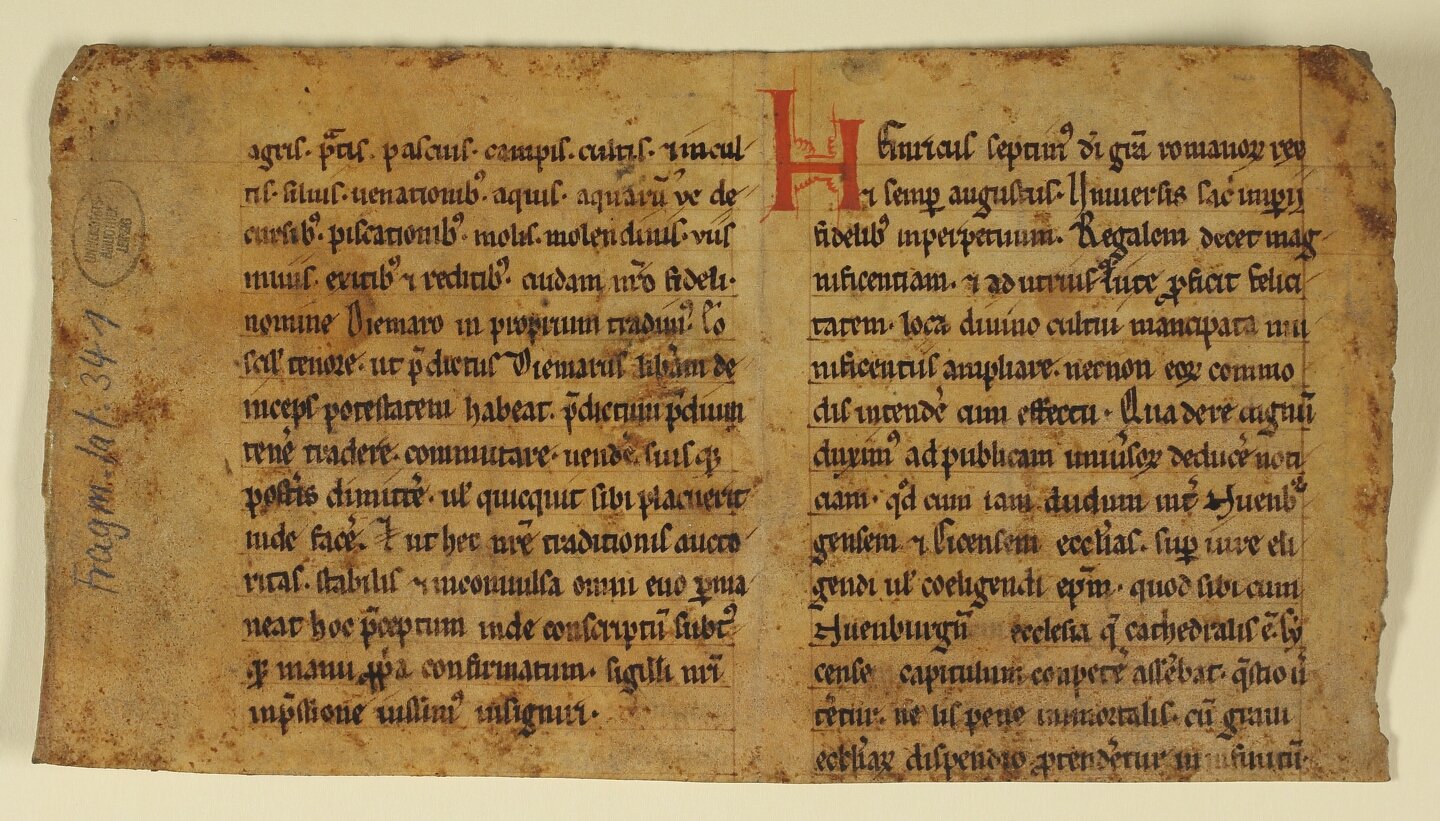 agris· p̄tis· pascuis· campis· cultis· ⁊ incul
tis· siluis· uenationib⁹· aquis· aquarū ve de
cursib⁹· piscationib⁹· molis· molendinis· viis
inuiis· exitib⁹ ⁊ reditib⁹· cuidam nr̄o fideli·
nomine Diemaro in proprium tradim⁹· Eo
scil' tenore· ut p̄dictus Diemarus lib̄am de
inceps potestatem habeat· p̄dictum p̄dium
tenē tradere· commutare· uendē· suisqꝫ
postis dimittē· ul' quicquit sibi placuerit
inde facē· Et ut hec nr̄e traditionis aucto
ritas· stabilis ⁊ inconuulsa omni euo ꝑma
neat hoc p̄ceptum inde conscriptū subt⁹
qꝫ manu ꝓpa confirmatum· sigilli nr̄i
inp̄ssione iussim⁹ insigniri·
HEinricus septim⁹ di ḡra romanoꝝ rex
⁊ semꝑ augustus· Uniuersis sac̄ imꝑii
fidelib⁹ inperpetuum· Regalem decet mag
nificentiam· ⁊ ad utriusꝗ uite ꝓficit felici
tatem· loca diuino cultui mancipata mu
nificentiis ampliare· necnon eoꝝ commo
dis intendē cum effectu· Qua de re dignū
duxim⁹ ad publicam uniu̓soꝝ deducē noti
ciam· qd̓ cum iam dudum int̄ Nuenb̓
gensem ⁊ Cicensem eccl̓ias· suꝑ iure eli
gendi ul' coeligendi ep̄m· quod sibi cum
Nuenburgn̄ ecclesia q̄ cathedralis ē· Cy
cense capitulum conpetē assēbat· q̄stio ū
tētur· ne lis pene inmortalis· cū graui
eccl̓iaꝝ dispendio ꝓtendētur in infinitū·
Fragm. lat. 341